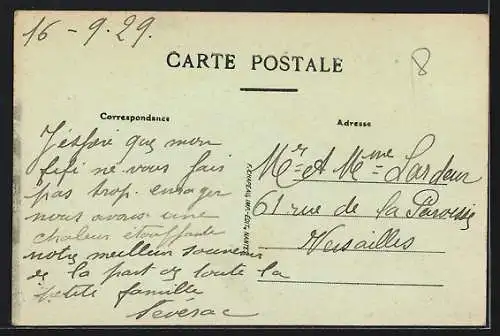 16-9-29.
8
CARTE POSTALE
Correspondance
Adresse
J'espère que mon
fifi ne vous fais
pas trop enrager
nous avons une
chaleur étouffante
notre meilleur souvenir
de la part de toute la
petite famille
Séverac
Mr et Mme Lardeur
61 rue de la Paroisse
Versailles